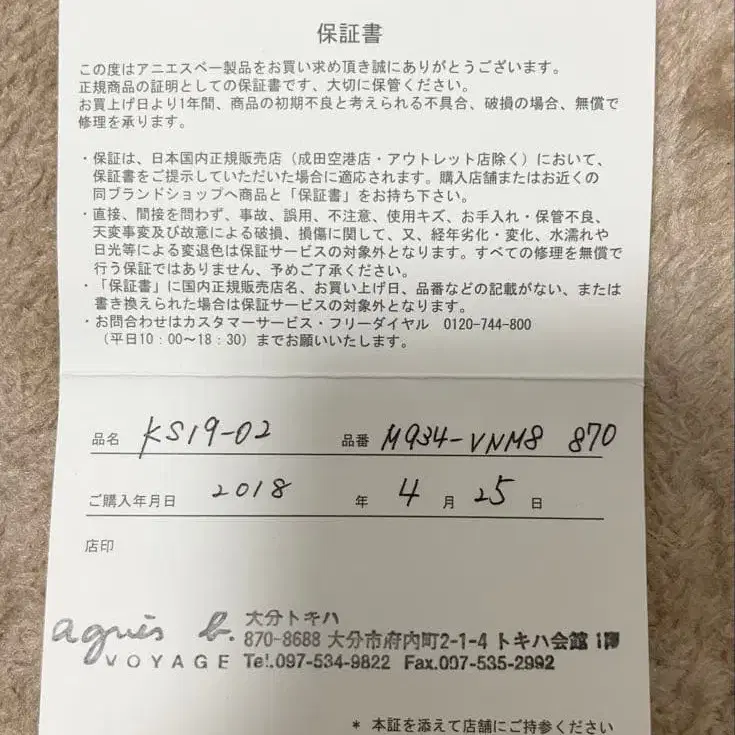 保証書
この度はアニエスベー製品をお買い求め頂き誠にありがとうございます。
正規商品の証明としての保証書です、大切に保管ください。
お買上げ日より1年間、商品の初期不良と考えられる不具合、破損の場合、無償で
修理を承ります。
・保証は、日本国内正規販売店（成田空港店・アウトレット店除く）において、
保証書をご提示していただいた場合に適応されます。購入店舗またはお近くの
同ブランドショップへ商品と「保証書」をお持ち下さい。
・直接、間接を問わず、事故、誤用、不注意、使用キズ、お手入れ・保管不良、
天変事変及び故意による破損、損傷に関して、又、経年劣化・変化、水濡れや
日光等による変退色は保証サービスの対象外となります。すべての修理を無償で
行う保証ではありません、予めご了承ください。
・「保証書」に国内正規販売店名、お買い上げ日、品番などの記載がない、または
書き換えられた場合は保証サービスの対象外となります。
・お問合わせはカスタマーサービス・フリーダイヤル 0120-744-800
（平日10：00〜18：30）までお願いいたします。
品名 KS19-02 品番 M934-VNM8 870
ご購入年月日 2018 年 4 月 25 日
店印
agnès b. 大分トキハ
870-8688 大分市府内町2-1-4 トキハ会館 1階
VOYAGE Tel.097-534-9822 Fax.097-535-2992
* 本証を添えて店舗にご持参ください